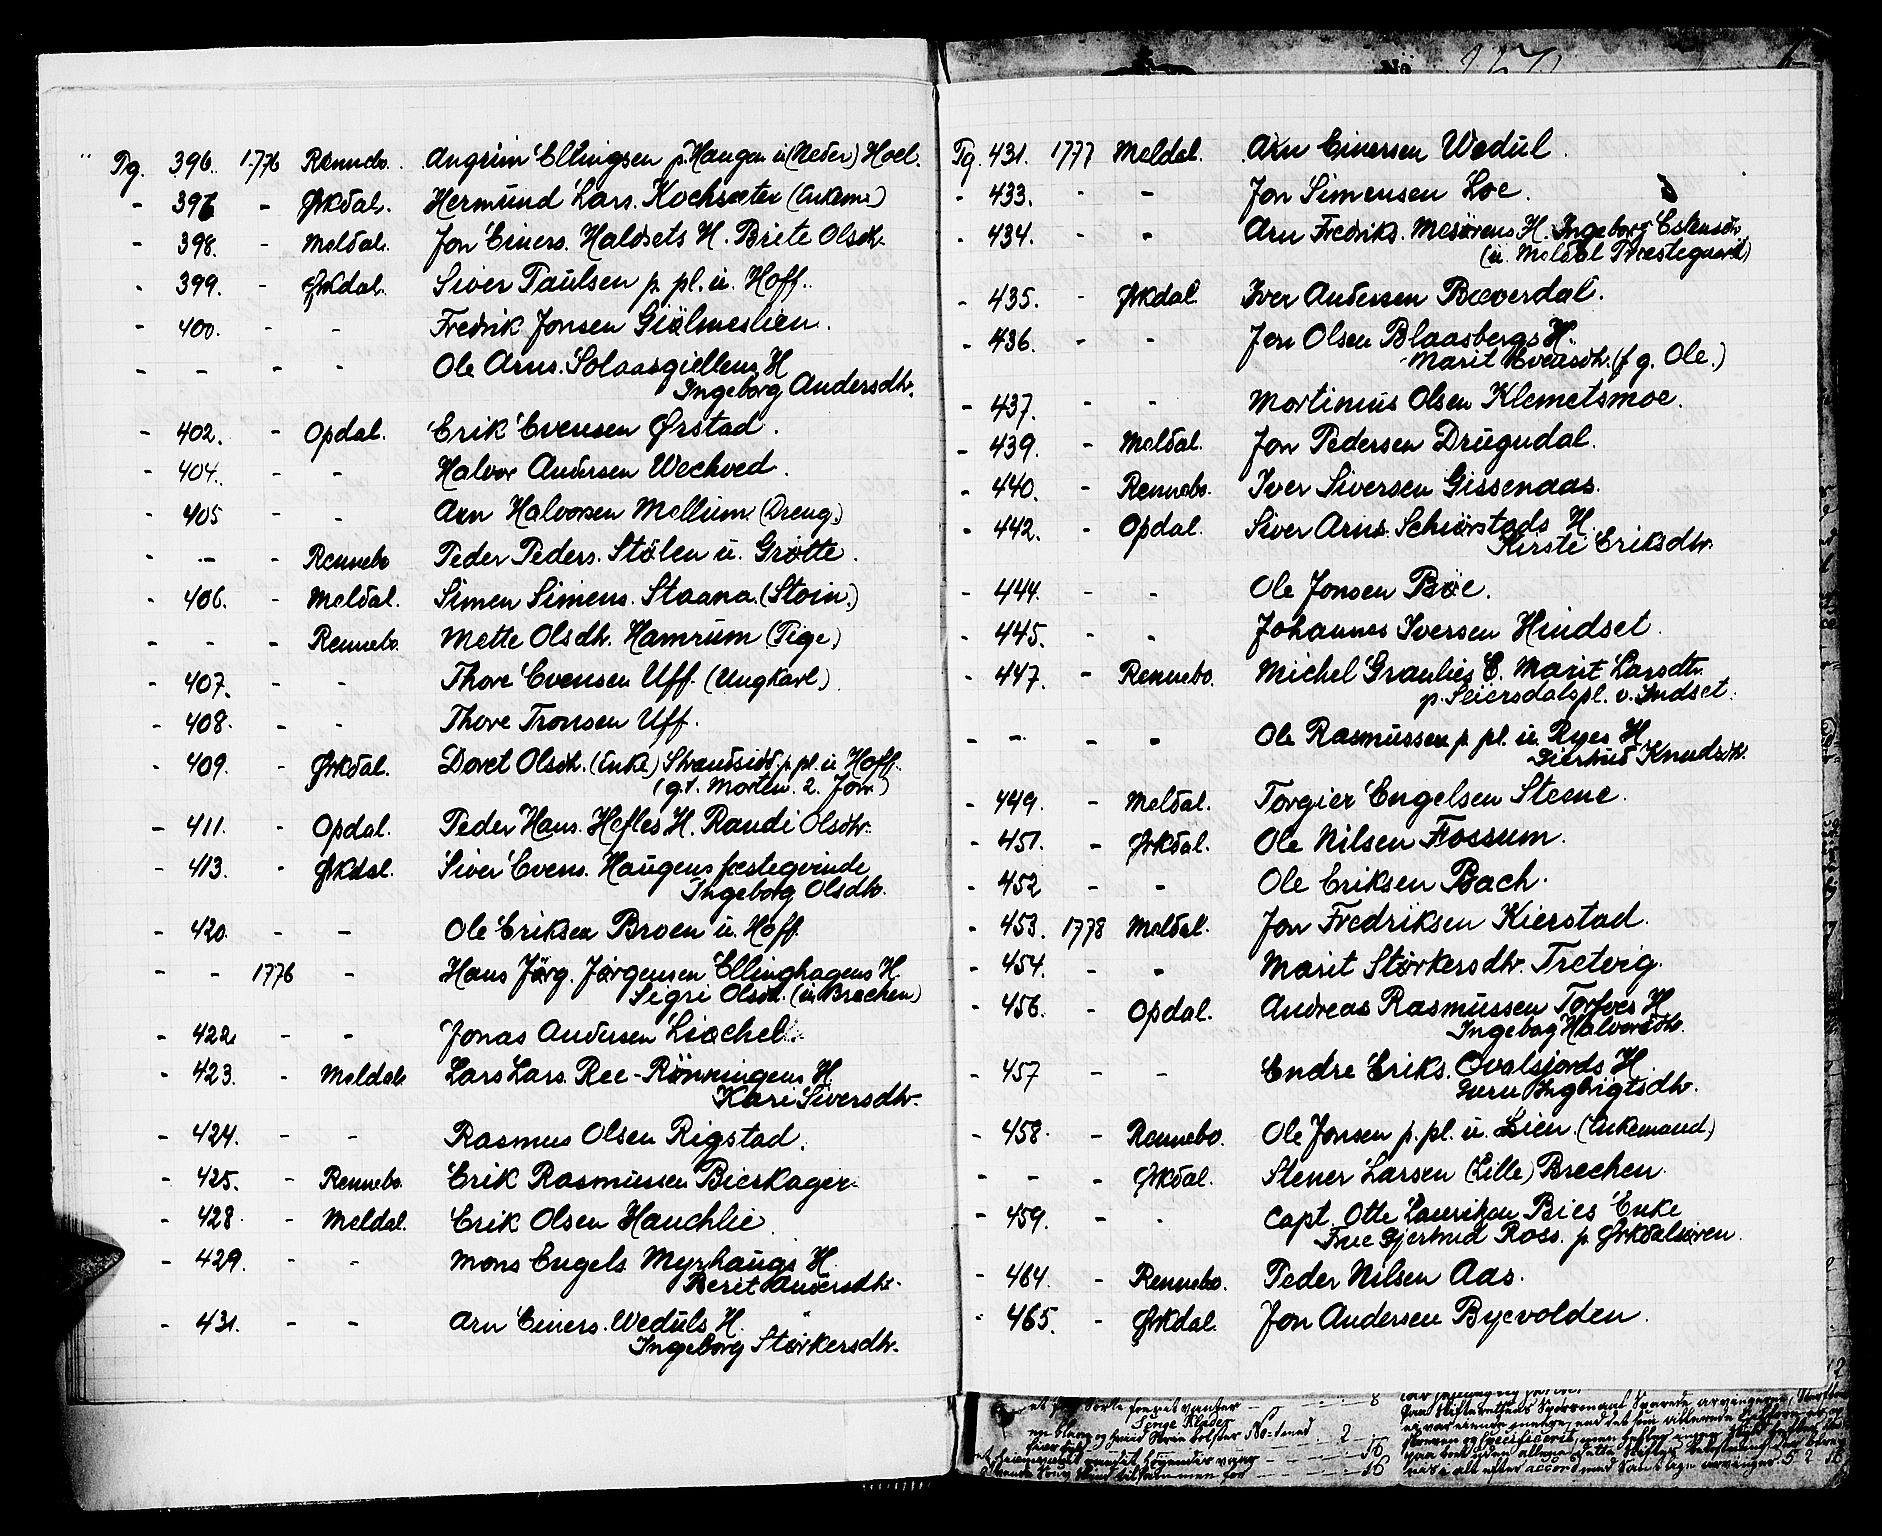 Pg. 396. 1776 Rennebo. Angrim Ellingsen p. Haugen u. (Neder) Hoel.
- 397 - Ørkdal. Hermund Lars. Kochsæter (Enkem.)
- 398. - Meldal. Jon Einers. Haldsets H. Brite Olsdtr.
- 399. - Ørkdal. Siver Paulsen p. pl. u. Hoff.
- 400. - - Fredrik Jonsen Giølmeslien.
- - - - Ole Arns. Solaasgiellens H
Ingeborg Andersdtr.
- 402. - Opdal. Erik Evensen Ørstad.
- 404. - - Halvor Andersen Wechved.
- 405 - - Arn Halvorsen Mellum. (Dreng.)
- - - Rennebo Peder Peders. Stølen u. Grøtte.
- 406. - Meldal. Simen Simens. Staana. (Stoin.)
- - - Rennebo. Mette Olsdtr. Hamrum (Pige)
- 407. - - Thore Evensen Uff. (Ungkarl)
- 408. - - Thore Tronsen Uff.
- 409. - Ørkdal. Doret Olsdtr. (Enke) Strandsidd. p. pl. u. Hoff.
(g.1. Morten. 2. Jon.)
- 411. - Opdal. Peder Hans. Hefles H. Randi Olsdtr.
- 413. - Ørkdal. Siver Evens. Haugens fæstegvinde
Ingeborg Olsdtr.
- 420. - - Ole Eriksen Broen u. Hoff.
- - 1776 - Hans Jørg. Jørgensen Ellinghagens H.
Sigri Olsdt. (u. Brechen)
- 422. - - Jonas Andersen Liachel.
- 423. - Meldal. Lars Lars. Ree-Rønningens H.
Kari Siversdtr.
- 424. - - Rasmus Olsen Rigstad.
- 425. - Rennebo. Erik Rasmussen Bieskager.
- 428. - Meldal. Erik Olsen Hauchlie.
- 429. - - Mons Engels. Myrhaugs H.
Berit Andersdtr.
- 431. - - Arn Einers. Weduls H.
Ingeborg Størkersdtr.
Pg. 431. 1777 Meldal. Arn Einersen Wedul.
- 433. - - Jon Simensen Loe.
- 434. - - Arn Fredriks. Mesørens H. Ingeborg Estensdtr
(u. Meldal Præstegaard)
- 435. - Ørkdal Iver Andersen Bæverdal.
- 436. - - Jon Olsen Blaasbergs H.
Marit Evensdtr. (f. g. Ole.)
- 437. - - Mortinius Olsen Klemetsmoe.
- 439. - Meldal. Jon Pedersen Drugudal.
- 440. - Rennebo. Iver Siversen Gissenaas.
- 442. - Opdal. Siver Arns. Schiørstads H.
Kirsti Eriksdtr.
- 444. - - Ole Jonsen Bøe.
- 445. - - Johannes Iversen Hindset.
- 447. - Rennebo. Michel Graulies E. Marit Larsdtr.
p. Seiersdalspl. v. Indset.
- - - - Ole Rasmussen p. pl. u. Ryes H.
Giertrud Knudsdtr.
- 449. - Meldal. Torgier Engelsen Steene.
- 451. - Ørkdal. Ole Nilsen Fossum.
- 452 - - Ole Eriksen Bach.
- 453. 1778 Meldal. Jon Fredriksen Kierstad.
- 454. - - Marit Størkersdtr. Tretvig.
- 456. - Opdal. Andreas Rasmussen Torfves H
Ingeborg Halvorsdtr.
- 457 - - Endre Eriks. Ovalsjords H.
Guru Ingbrigtsdtr.
- 458. - Rennebo. Ole Jonsen p. pl. u. Lien (Enkemand)
- - - Ørkdal. Stener Larsen (Lille) Brechen.
- 459. - - Capt. Otte Lauritzen Bies Enke
Frue Gjertrud Ross. p. Ørkdalsøren.
- 464. - Rennebo. Peder Nilsen Aas.
- 465. - Ørkdal. Jon Andersen Byevolden.